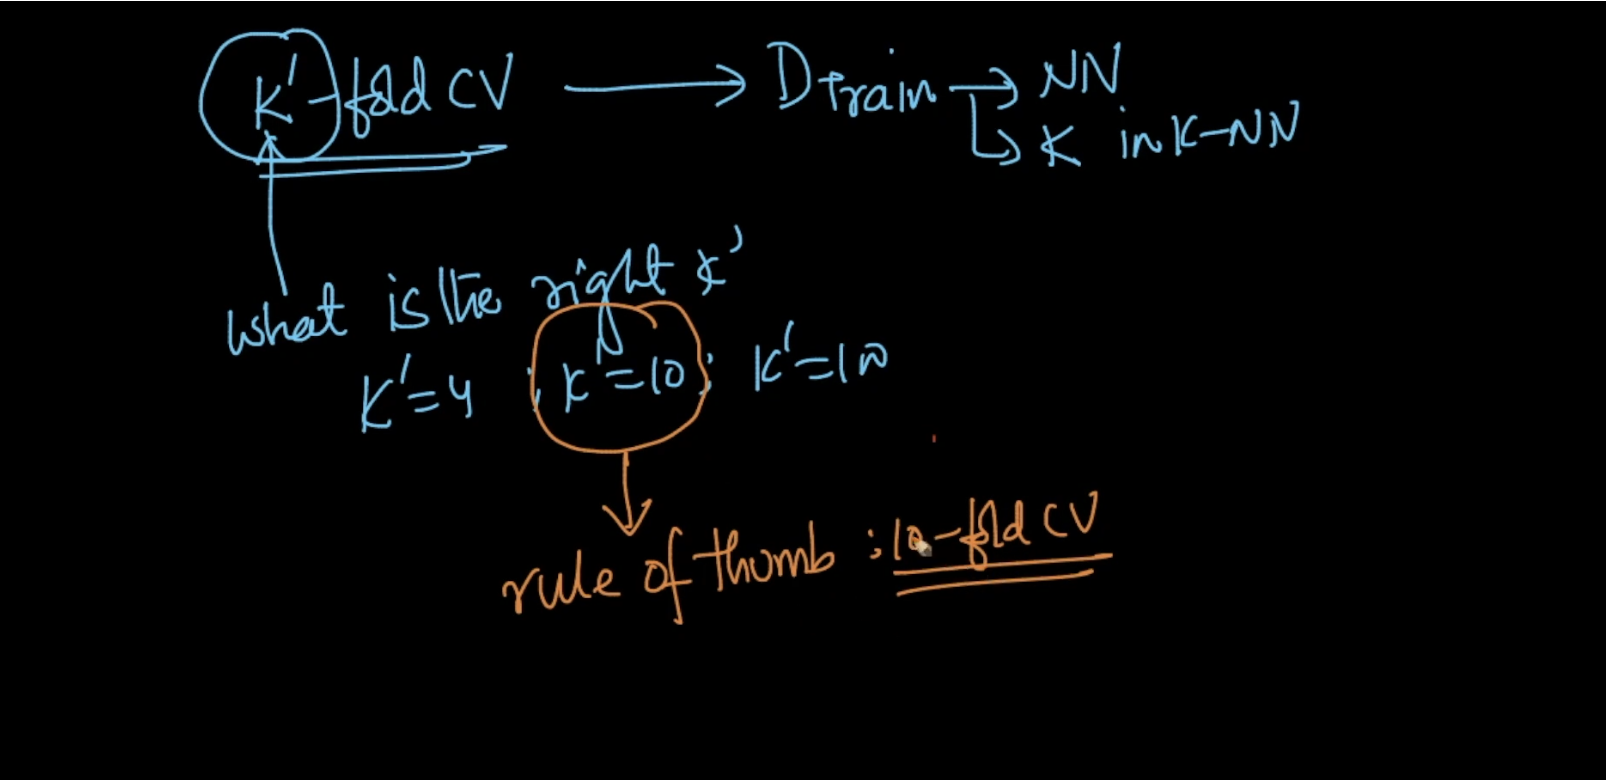 K'-fold CV → Dtrain → NN
↳ K in K-NN
what is the right K'
K'=4 ; K'=10 ; K'=100
rule of thumb : 10-fold CV